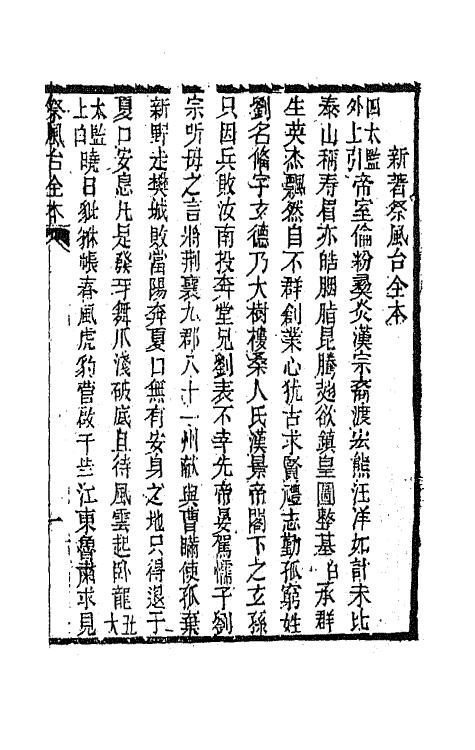 新著祭風台全本
四太監外上引帝室倫粉㬪炎漢宗裔渡宏熊汪洋如計未比
泰山稱寿眉亦皓胭脂昆騰趂欲鎮皇圖整基白承群
生英杰飄然自不群創業心犹古求賢禮志勤孤窮姓
劉名俻字玄德乃大樹樓桑人氏漢景帝閣下之玄孫
只因兵敗汝南投奔堂兄劉表不幸先帝晏駕懦子劉
宗听毋之言將荆襄九郡八十一州献與曹瞞使孤棄
新野走樊城敗當陽奔夏口無有安身之地只得退于
夏口安息凡是發牙舞爪淺破底且待風雲起卧龍丑大
太監上白曉日貔貅帳春風虎豹营啟千些江東魯肅求見
祭風台全本
一